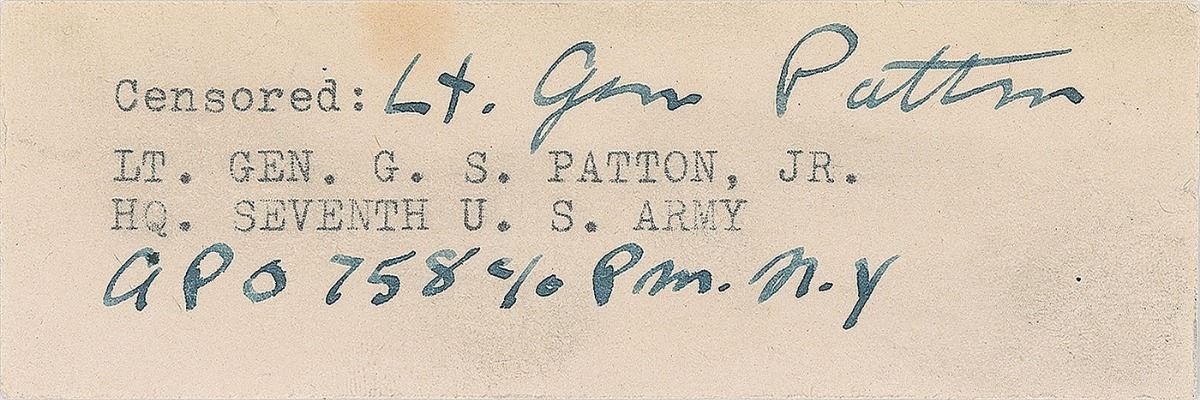 Censored: Lt. Gen Patton
LT. GEN. G. S. PATTON, JR.
HQ. SEVENTH U. S. ARMY
APO 758 c/o P.m. N.Y